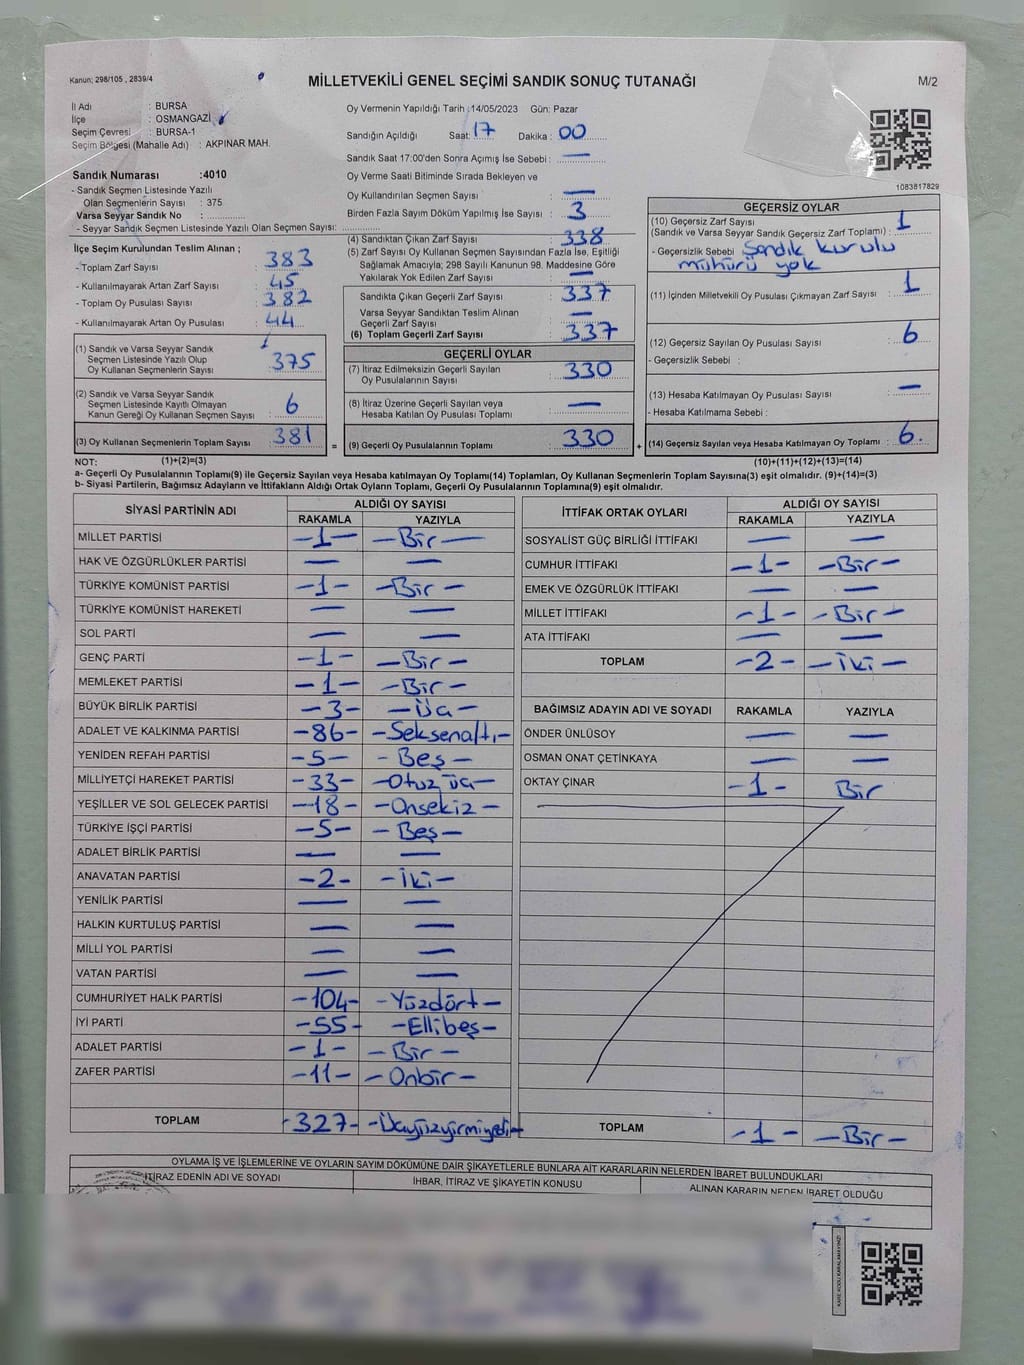 Kanun; 298/105 , 2839/4
MİLLETVEKİLİ GENEL SEÇİMİ SANDIK SONUÇ TUTANAĞI
M/2
İl Adı : BURSA
İlçe : OSMANGAZİ
Seçim Çevresi : BURSA-1
Seçim Bölgesi (Mahalle Adı) : AKPINAR MAH.
Sandık Numarası :4010
- Sandık Seçmen Listesinde Yazılı
Olan Seçmenlerin Sayısı : 375
Varsa Seyyar Sandık No :
- Seyyar Sandık Seçmen Listesinde Yazılı Olan Seçmen Sayısı:
Oy Vermenin Yapıldığı Tarih :14/05/2023 Gün: Pazar
Sandığın Açıldığı Saat: 17 Dakika : 00
Sandık Saat 17:00'den Sonra Açımış İse Sebebi : —
Oy Verme Saati Bitiminde Sırada Bekleyen ve
Oy Kullandırılan Seçmen Sayısı : —
Birden Fazla Sayım Döküm Yapılmış İse Sayısı : 3
1083817829
İlçe Seçim Kurulundan Teslim Alınan ;
- Toplam Zarf Sayısı : 383
- Kullanılmayarak Artan Zarf Sayısı : 45
- Toplam Oy Pusulası Sayısı : 382
- Kullanılmayarak Artan Oy Pusulası : 44
(1) Sandık ve Varsa Seyyar Sandık
Seçmen Listesinde Yazılı Olup
Oy Kullanan Seçmenlerin Sayısı : 375
(2) Sandık ve Varsa Seyyar Sandık
Seçmen Listesinde Kayıtlı Olmayan
Kanun Gereği Oy Kullanan Seçmen Sayısı : 6
(3) Oy Kullanan Seçmenlerin Toplam Sayısı : 381
(4) Sandıktan Çıkan Zarf Sayısı : 338
(5) Zarf Sayısı Oy Kullanan Seçmen Sayısından Fazla İse, Eşitliği
Sağlamak Amacıyla; 298 Sayılı Kanunun 98. Maddesine Göre
Yakılarak Yok Edilen Zarf Sayısı : —
Sandıkta Çıkan Geçerli Zarf Sayısı : 337
Varsa Seyyar Sandıktan Teslim Alınan
Geçerli Zarf Sayısı : —
(6) Toplam Geçerli Zarf Sayısı : 337
GEÇERLİ OYLAR
(7) İtiraz Edilmeksizin Geçerli Sayılan
Oy Pusulalarının Sayısı : 330
(8) İtiraz Üzerine Geçerli Sayılan veya
Hesaba Katılan Oy Pusulası Toplamı : —
= (9) Geçerli Oy Pusulalarının Toplamı : 330
GEÇERSİZ OYLAR
(10) Geçersiz Zarf Sayısı
(Sandık ve Varsa Seyyar Sandık Geçersiz Zarf Toplamı) : 1
- Geçersizlik Sebebi : Sandık kurulu
mühürü yok
(11) İçinden Milletvekili Oy Pusulası Çıkmayan Zarf Sayısı : 1
(12) Geçersiz Sayılan Oy Pusulası Sayısı : 6
- Geçersizlik Sebebi :
(13) Hesaba Katılmayan Oy Pusulası Sayısı : —
- Hesaba Katılmama Sebebi :
+ (14) Geçersiz Sayılan veya Hesaba Katılmayan Oy Toplamı : 6.
NOT: (1)+(2)=(3) (10)+(11)+(12)+(13)=(14)
a- Geçerli Oy Pusulalarının Toplamı(9) ile Geçersiz Sayılan veya Hesaba katılmayan Oy Toplamı(14) Toplamları, Oy Kullanan Seçmenlerin Toplam Sayısına(3) eşit olmalıdır. (9)+(14)=(3)
b- Siyasi Partilerin, Bağımsız Adayların ve İttifakların Aldığı Ortak Oyların Toplamı, Geçerli Oy Pusulalarının Toplamına(9) eşit olmalıdır.
SİYASİ PARTİNİN ADI ALDIĞI OY SAYISI
RAKAMLA YAZIYLA
MİLLET PARTİSİ -1- -Bir-
HAK VE ÖZGÜRLÜKLER PARTİSİ — —
TÜRKİYE KOMÜNİST PARTİSİ -1- -Bir-
TÜRKİYE KOMÜNİST HAREKETİ — —
SOL PARTİ — —
GENÇ PARTİ -1- -Bir-
MEMLEKET PARTİSİ -1- -Bir-
BÜYÜK BİRLİK PARTİSİ -3- -Üç-
ADALET VE KALKINMA PARTİSİ -86- -Seksenaltı-
YENİDEN REFAH PARTİSİ -5- -Beş-
MİLLİYETÇİ HAREKET PARTİSİ -33- -Otuz üç-
YEŞİLLER VE SOL GELECEK PARTİSİ -18- -Onsekiz-
TÜRKİYE İŞÇİ PARTİSİ -5- -Beş-
ADALET BİRLİK PARTİSİ — —
ANAVATAN PARTİSİ -2- -İki-
YENİLİK PARTİSİ — —
HALKIN KURTULUŞ PARTİSİ — —
MİLLİ YOL PARTİSİ — —
VATAN PARTİSİ — —
CUMHURİYET HALK PARTİSİ -104- -Yüzdört-
İYİ PARTİ -55- -Ellibeş-
ADALET PARTİSİ -1- -Bir-
ZAFER PARTİSİ -11- -Onbir-
TOPLAM -327- -Üçyüzyirmiyedi-
İTTİFAK ORTAK OYLARI ALDIĞI OY SAYISI
RAKAMLA YAZIYLA
SOSYALİST GÜÇ BİRLİĞİ İTTİFAKI — —
CUMHUR İTTİFAKI -1- -Bir-
EMEK VE ÖZGÜRLÜK İTTİFAKI — —
MİLLET İTTİFAKI -1- -Bir-
ATA İTTİFAKI — —
TOPLAM -2- -İki-
BAĞIMSIZ ADAYIN ADI VE SOYADI RAKAMLA YAZIYLA
ÖNDER ÜNLÜSOY — —
OSMAN ONAT ÇETİNKAYA — —
OKTAY ÇINAR -1- Bir
TOPLAM -1- -Bir-
OYLAMA İŞ VE İŞLEMLERİNE VE OYLARIN SAYIM DÖKÜMÜNE DAİR ŞİKAYETLERLE BUNLARA AİT KARARLARIN NELERDEN İBARET BULUNDUKLARI
İTİRAZ EDENİN ADI VE SOYADI İHBAR, İTİRAZ VE ŞİKAYETİN KONUSU ALINAN KARARIN NEDEN İBARET OLDUĞU
KARE KODU KARALAMAYINIZ!